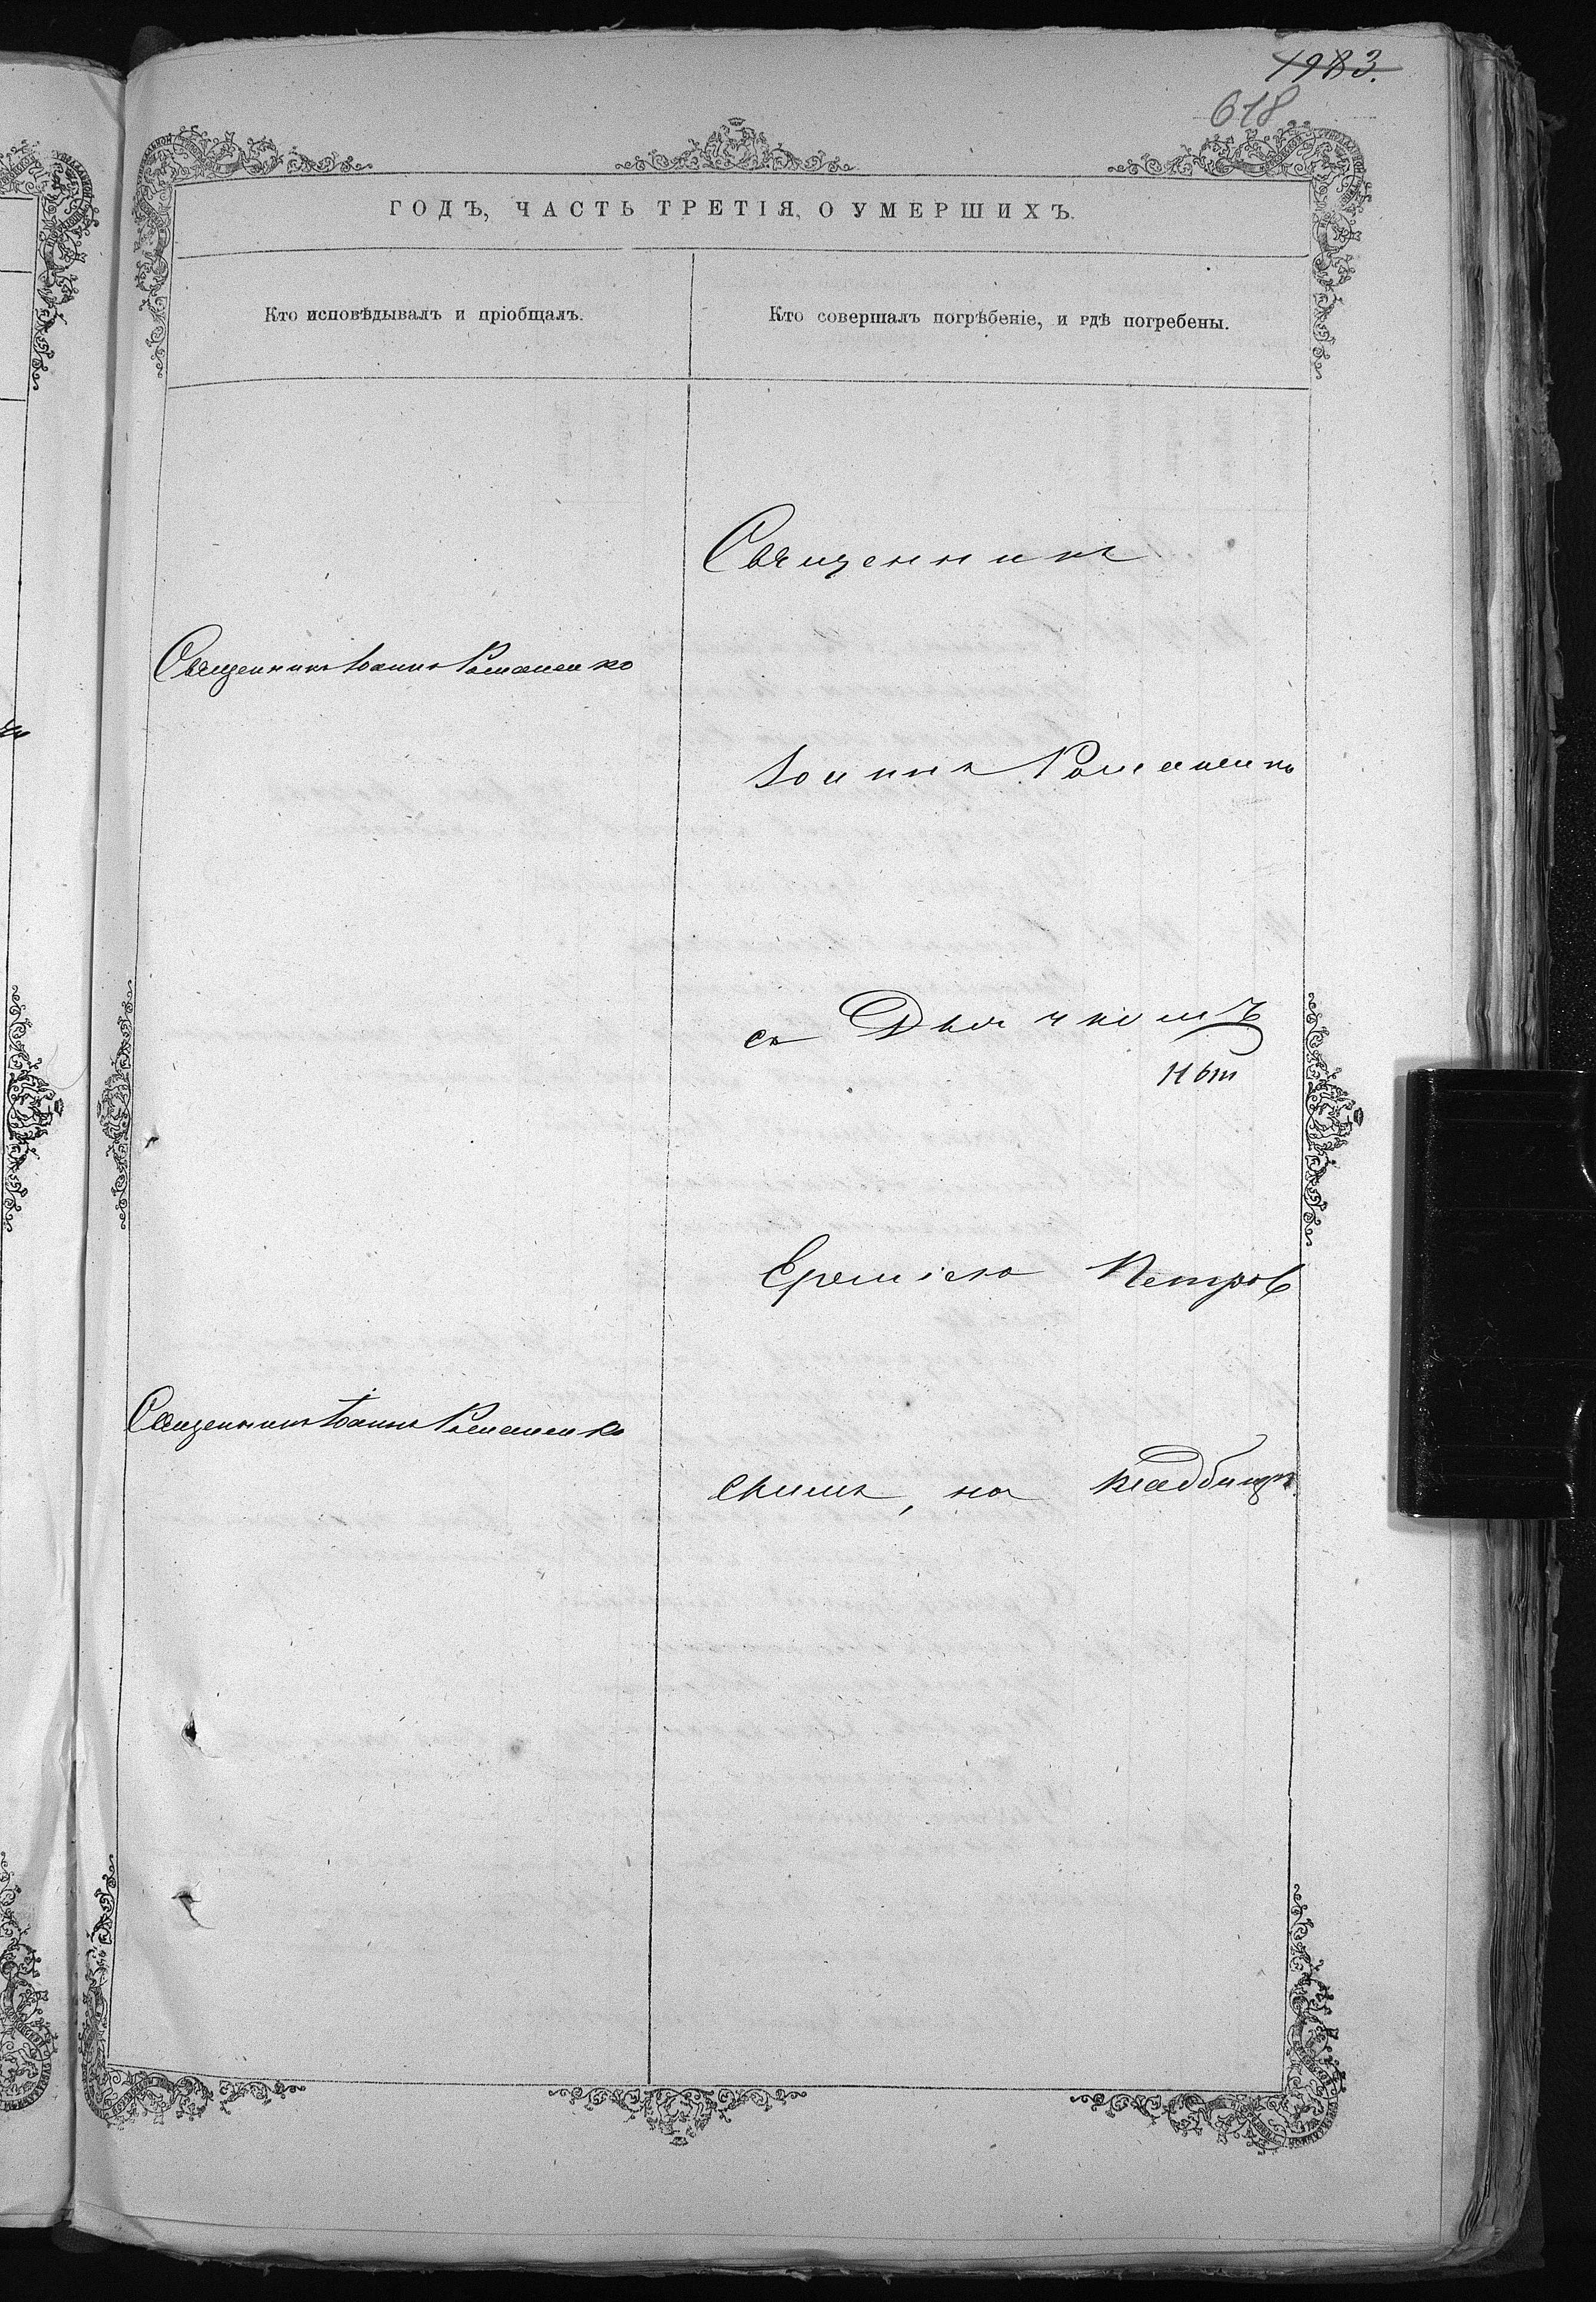 1983.
618
ГОДЪ, ЧАСТЬ ТРЕТІЯ, О УМЕРШИХЪ.
Кто исповѣдывалъ и пріобщалъ.
Кто совершалъ погрѣбеніе, и гдѣ погребены.
Священникъ Іоаннъ Романенко
Священникъ Іоаннъ Романенко
Священникъ
Іоаннъ Романенко
съ Дьячкомъ
Еремѣею Петров
скимъ, на кладбищѣ.